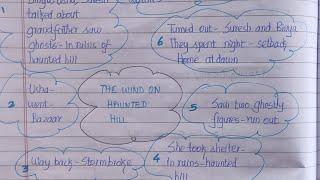 talked about
grandfather saw
ghosts- In ruins of
haunted hill
1
2
Usha
went
Bazaar
3 Way back - Stormbroke
THE WIND ON
HAUNTED
HILL
4
She took shelter-
In ruins -haunted
hill
5
Saw two ghostly
figures - run out
6
Turned out - Suresh and Binya
They spent night - setback
Home at dawn